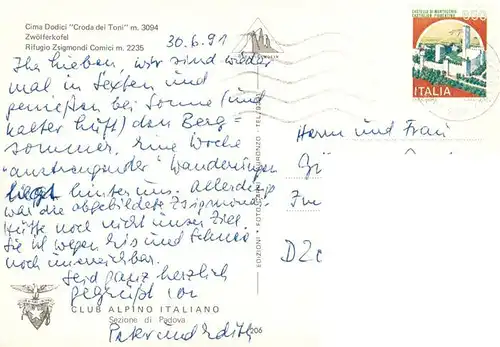 Cima Dodici "Croda dei Toni" m. 3094
Zwölferkofel
Rifugio Zsigmondi Comici m. 2235
30.6.91
Ihr lieben, wir sind wieder
mal in Sexten und
genießen bei Sonne (und
kalter Luft) den Berg-
sommer. Eine Woche
"anstrengender" Wanderungen
liegt hinter uns. Allerdings
war die abgebildete Zsigmondi-
Hütte noch nicht unser Ziel
Sie ist wegen Eis und Schnee
noch unerreichbar.
Seid ganz herzlich
gegrüßt von
Peter und Edith
CLUB ALPINO ITALIANO
Sezione di Padova
206
EDIZIONI
CASTELLO DI MONTECCHIO
CASTIGLION FIORENTINO
850
ITALIA
Herrn und Frau